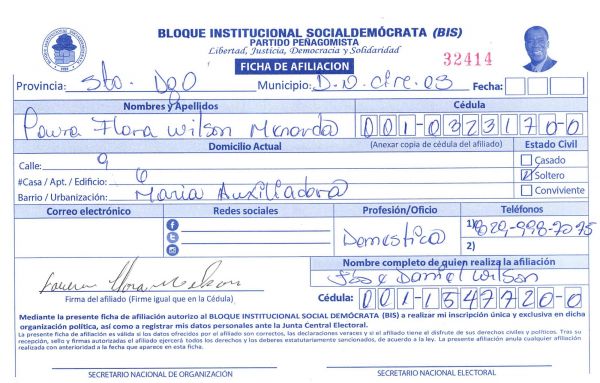 BLOQUE INSTITUCIONAL SOCIALDEMÓCRATA (BIS)
PARTIDO PEÑAGOMISTA
Libertad, Justicia, Democracia y Solidaridad
32414
FICHA DE AFILIACION
Provincia: Sto. Dgo Municipio: D.N. Fecha:
Nombres y Apellidos Cédula
Flora Wilson 001-0323170-0
Domicilio Actual (Anexar copia de cédula del afiliado) Estado Civil
Calle: 9 Casado
#Casa / Apt. / Edificio: 6 Soltero
Barrio / Urbanización: Maria Auxiliadora Conviviente
Correo electrónico Redes sociales Profesión/Oficio Teléfonos
Domestica 1) 829-998-7075
2)
Nombre completo de quien realiza la afiliación
Daniel Wilson
Firma del afiliado (Firme igual que en la Cédula) Cédula: 001-1547720-0
Mediante la presente ficha de afiliación autorizo al BLOQUE INSTITUCIONAL SOCIAL DEMÓCRATA (BIS) a realizar mi inscripción única y exclusiva en dicha
organización política, así como a registrar mis datos personales ante la Junta Central Electoral.
La presente ficha de afiliación es válida si los datos ofrecidos por el afiliado son correctos, las declaraciones veraces y si el afiliado tiene el disfrute de sus derechos civiles y políticos. Tras su
recepción, sello y firmas autorizadas el afiliado ejercerá todos los derechos y los deberes estatutariamente sancionados, de acuerdo a la ley. La presente afiliación anula cualquier afiliación
realizada con anterioridad a la fecha que aparece en esta ficha.
SECRETARIO NACIONAL DE ORGANIZACIÓN SECRETARIO NACIONAL ELECTORAL